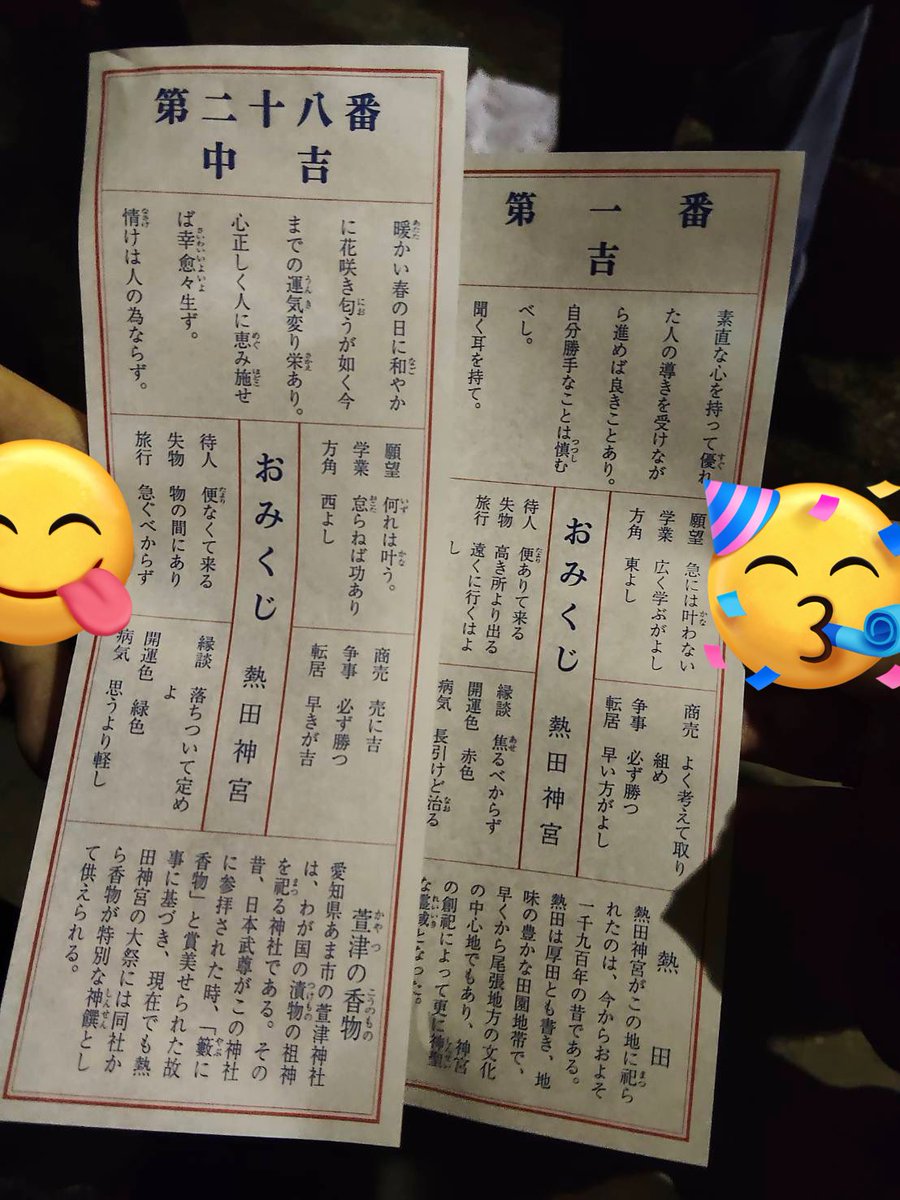 第二十八番
中吉
暖かい春の日に和やか
に花咲き匂うが如く今
までの運気変り栄あり。
心正しく人に恵み施せ
ば幸愈々生ず。
情けは人の為ならず。
願望 何れは叶う。
学業 怠らねば功あり
方角 西よし
商売 売に吉
争事 必ず勝つ
転居 早きが吉
おみくじ 熱田神宮
待人 便なくて来る
失物 物の間にあり
旅行 急ぐべからず
縁談 落ちついて定め
よ
開運色 緑色
病気 思うより軽し
萱津の香物
愛知県あま市の萱津神社
は、わが国の漬物の祖神
を祀る神社である。その
昔、日本武尊がこの神社
に参拝された時、「藪に
香物」と賞美せられた故
事に基づき、現在でも熱
田神宮の大祭には同社か
ら香物が特別な神饌とし
て供えられる。
第一番
吉
素直な心を持って優れ
た人の導きを受けなが
ら進めば良きことあり。
自分勝手なことは慎む
べし。
聞く耳を持て。
願望 急には叶わない
学業 広く学ぶがよし
方角 東よし
商売 よく考えて取り
組め
争事 必ず勝つ
転居 早い方がよし
おみくじ 熱田神宮
待人 便ありて来る
失物 高き所より出る
旅行 遠くに行くはよ
し
縁談 焦るべからず
開運色 赤色
病気 長引けど治る
熱田
熱田神宮がこの地に祀ら
れたのは、今からおよそ
一千九百年の昔である。
熱田は厚田とも書き、地
味の豊かな田園地帯で、
早くから尾張地方の文化
の中心地でもあり、神宮
の創祀によって更に神聖
な霊域となった。